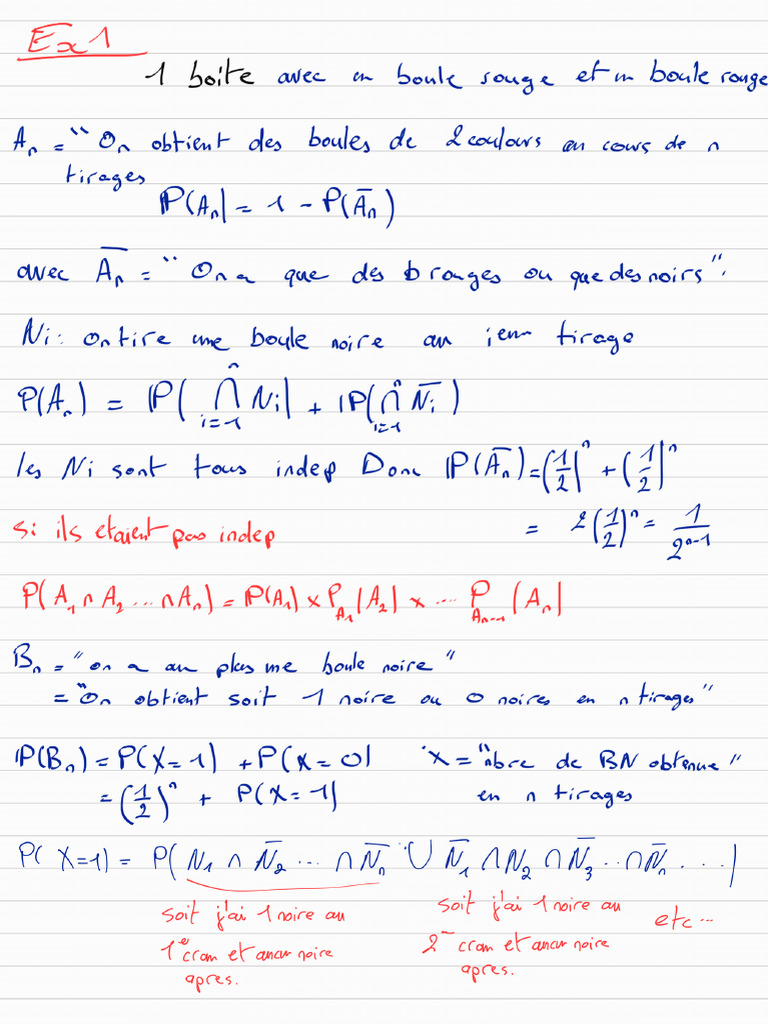 Ex1
1 boite avec un boule rouge et un boule rouge
An = "On obtient des boules de 2 coulours au cours de n
tirages
P(An) = 1 - P(A̅n)
avec A̅n = "On a que des b rouges ou que des noirs".
Ni : on tire une boule noire au ieme tirage
P(An) = P(⋂_{i=1}^{n} Ni) + P(⋂_{i=1}^{n} N̅i)
les Ni sont tous indep Donc P(A̅n) = (1/2)^n + (1/2)^n
si ils etaient pas indep = 2(1/2)^n = 1/2^{n-1}
P(A1 ∩ A2 ... ∩ An) = P(A1) × P_{A1}(A2) × ... P_{An-1}(An)
Bn = "on a au plus une boule noire"
= "On obtient soit 1 noire ou 0 noires en n tirages"
P(Bn) = P(X=1) + P(X=0) X = "nbre de BN obtenue"
= (1/2)^n + P(X=1) en n tirages
P(X=1) = P(N1 ∩ N̅2 ... ∩ N̅n ∪ N̅1 ∩ N2 ∩ N̅3 ... ∩ N̅n ....)
soit j'ai 1 noire au soit j'ai 1 noire au etc...
1e cran et aucun noire 2 cran et aucun noire
apres. apres.